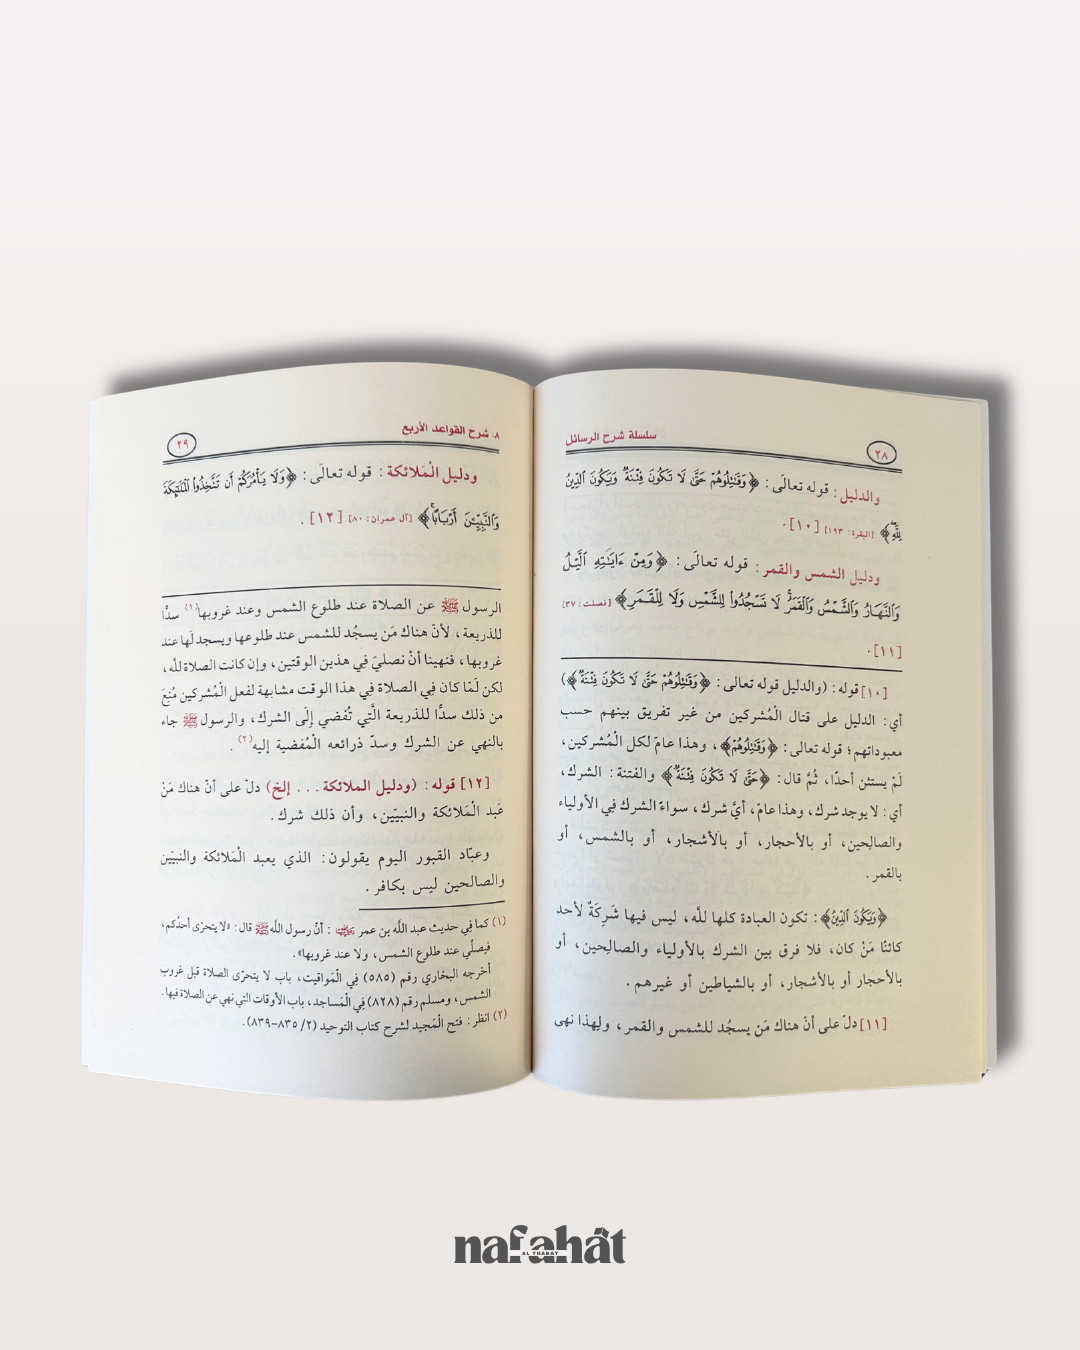 سلسلة شرح الرسائل
٢٨
والدليل: قوله تعالَى: ﴿وَقَٰتِلُوهُمْ حَتَّىٰ لَا تَكُونَ فِتْنَةٌ وَيَكُونَ ٱلدِّينُ
لِلَّهِ﴾ [البقرة: ١٩٣] [١٠].
ودليل الشمس والقمر: قوله تعالَى: ﴿وَمِنْ ءَايَٰتِهِ ٱلَّيْلُ
وَٱلنَّهَارُ وَٱلشَّمْسُ وَٱلْقَمَرُ لَا تَسْجُدُوا۟ لِلشَّمْسِ وَلَا لِلْقَمَرِ﴾ [فصلت: ٣٧]
[١١].
[١٠] قوله: (والدليل قوله تعالى: ﴿وَقَٰتِلُوهُمْ حَتَّىٰ لَا تَكُونَ فِتْنَةٌ﴾)
أي: الدليل على قتال الْمُشركين من غير تفريق بينهم حسب
معبوداتهم؛ قوله تعالى: ﴿وَقَٰتِلُوهُمْ﴾، وهذا عامّ لكل الْمُشركين،
لَمْ يستثن أحدًا، ثُمَّ قال: ﴿حَتَّىٰ لَا تَكُونَ فِتْنَةٌ﴾ والفتنة: الشرك،
أي: لا يوجد شرك، وهذا عامّ، أيَّ شرك، سواءً الشرك فِي الأولياء
والصالِحين، أو بالأحجار، أو بالأشجار، أو بالشمس، أو
بالقمر.
﴿وَيَكُونَ ٱلدِّينُ﴾: تكون العبادة كلها للَّه، ليس فيها شَرِكَةٌ لأحد
كائنًا مَنْ كان، فلا فرق بين الشرك بالأولياء والصالِحين، أو
بالأحجار أو بالأشجار، أو بالشياطين أو غيرهم.
[١١] دلّ على أنّ هناك مَن يسجُد للشمس والقمر، ولِهذا نهى
٨. شرح القواعد الأربع
٢٩
ودليل الْمَلائكة: قوله تعالَى: ﴿وَلَا يَأْمُرَكُمْ أَن تَتَّخِذُوا۟ ٱلْمَلَٰٓئِكَةَ
وَٱلنَّبِيِّۦنَ أَرْبَابًا﴾ [آل عمران: ٨٠] [١٢].
الرسول ﷺ عن الصلاة عند طلوع الشمس وعند غروبها(١) سدًّا
للذريعة، لأنّ هناك مَن يسجُد للشمس عند طلوعها ويسجد لَها عند
غروبها، فنهينا أنْ نصليَ في هذين الوقتين، وإن كانت الصلاة للَّه،
لكن لَمّا كان فِي الصلاة فِي هذا الوقت مشابهة لفعل الْمُشركين مُنِعَ
من ذلك سدًّا للذريعة الَّتِي تُفْضي إِلَى الشرك، والرسول ﷺ جاء
بالنهي عن الشرك وسدّ ذرائعه الْمُفضية إليه(٢).
[١٢] قوله: (ودليل الملائكة... إلخ) دلّ على أنّ هناك مَنْ
عَبد الْمَلائكة والنبيّين، وأن ذلك شرك.
وعبّاد القبور اليوم يقولون: الذي يعبد الْمَلائكة والنبيّين
والصالحين ليس بكافر.
(١) كما فِي حديث عبد اللَّه بن عمر رضي الله عنهما: أنّ رسول اللَّه ﷺ قال: «لا يتحرّى أحدُكم،
فيصلِّي عند طلوع الشمس، ولا عند غروبها».
أخرجه البخاري رقم (٥٨٥) فِي الْمَواقيت، باب لا يتحرّى الصلاة قبل غروب
الشمس، ومسلم رقم (٨٢٨) فِي الْمَساجد، باب الأوقات التي نهي عن الصلاة فيها.
(٢) انظر: فتح الْمَجيد لشرح كتاب التوحيد (٢/ ٨٣٥-٨٣٩).
nafahāt
AL THABAT